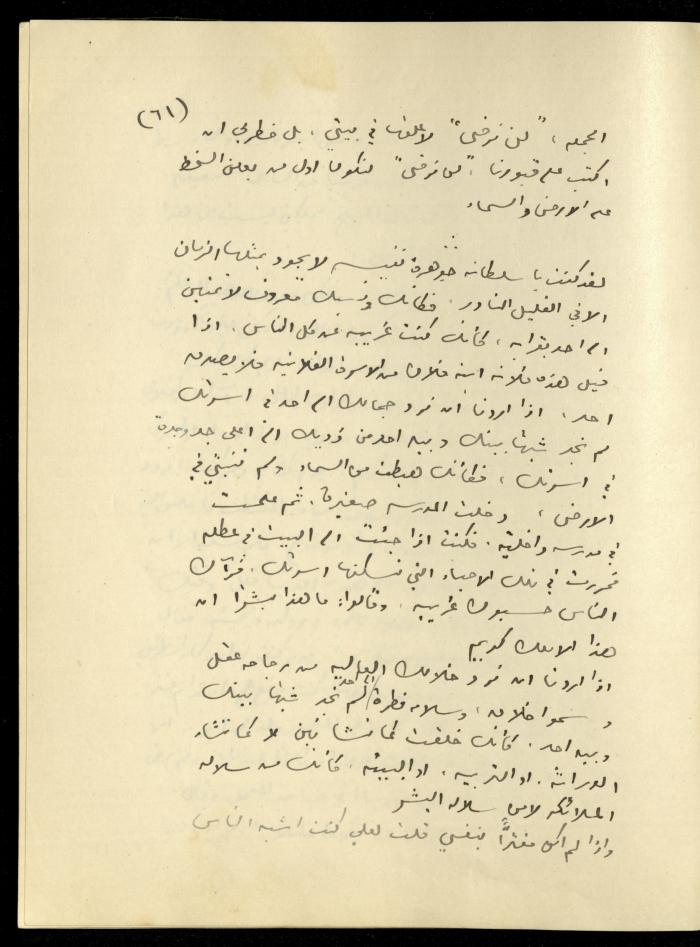 (٦١)
الجملة، "لمن نرضى" لاعلقها في بيتي، بل خطر لي ان
اكتب على قبورنا "لمن نرضى" لنكون اول من يعلن السخط
على الارض والسماء
لقد كنت يا سلطانه جوهرة نفيسه لا يجود بمثلها الزمان
الا في القليل النادر. فكأنك وزنك معروف لا تمتين
الى احد بقرابه، كأنك كنت غريبه عن كل الناس. اذا
قيل هذه فلانه ابنة فلان من الاسرة الفلانيه فلا يصدقه
احد. اذا اردنا ان نرد جمالك الى احد في اسرتك
لم نجد شبها بينك وبين احد من ذويك الى اعلى جد وجدة
في اسرتك، فكأنك هبطت من السماء ولم تنبتي في
الارض، دخلت المدرسه صغيرة. ثم علمت
في مدرسه داخلية. فكنت اذا جئت الى البيت في عطله
فمررت في تلك الاحياء التي تسكنها اسرتك. فرآك
الناس حسبوك غريبه. وقالوا: ما هذا بشرا ان
هذا الا ملك كريم
اذا اردنا ان نرد خلالك العاليه من رجاحه عقل
وسمو اخلاق، وسلامه فطرة الى احد لم نجد شبها بينك
وبين احد. كأنك خلقت كما تشائين لا كما تشاء
الوراثة. او التربيه. او البيئه. كأنك من سلاله
الملائكه لا من سلاله البشر
واذا لم اكن مغترًّا بنفسي قلت لعلي كنت اشبه الناس